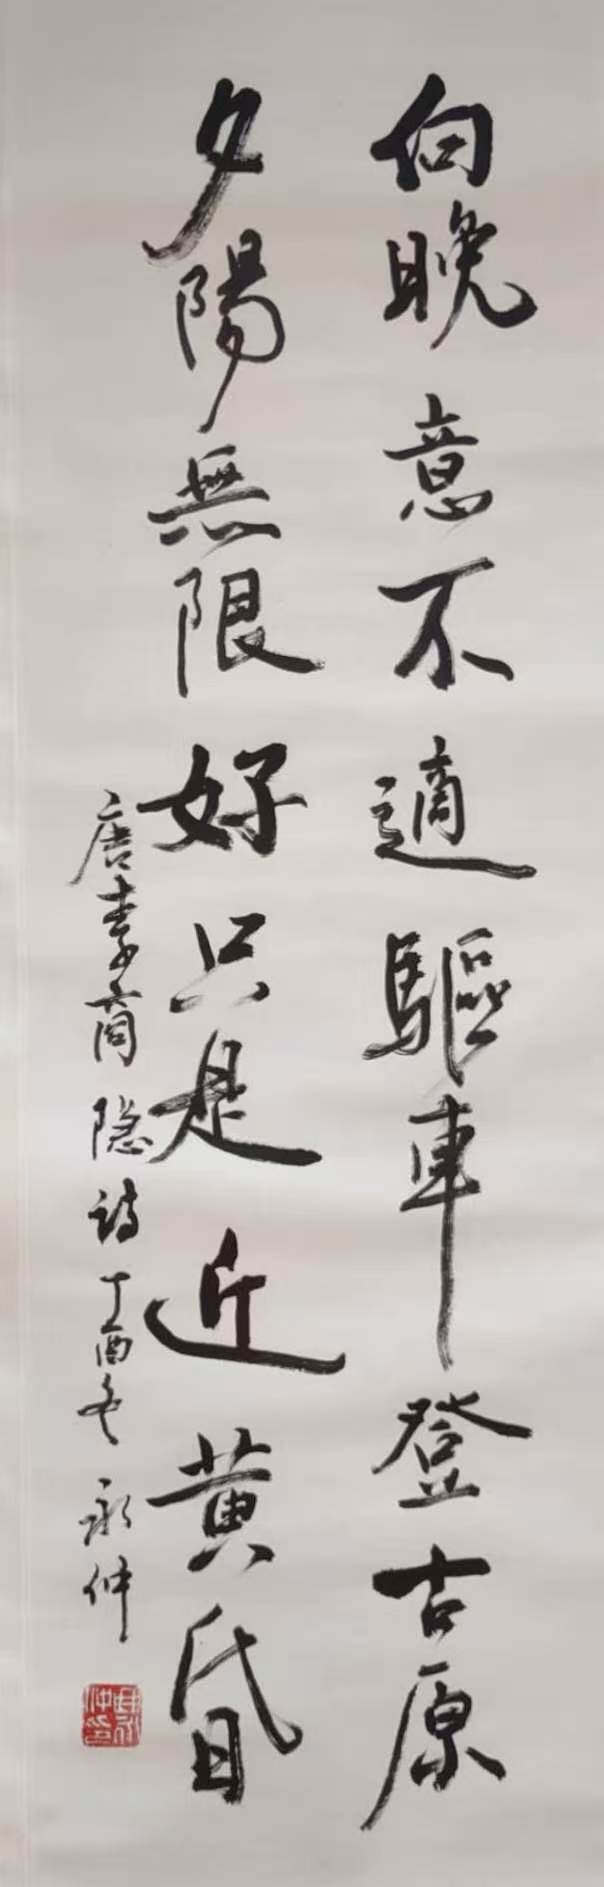 向晚意不適驅車登古原
夕陽無限好只是近黄昏
唐李商隐詩丁酉冬永仲